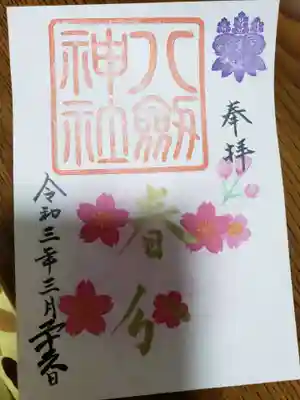 奉拝
八劔
神社
春分
令和三年三月